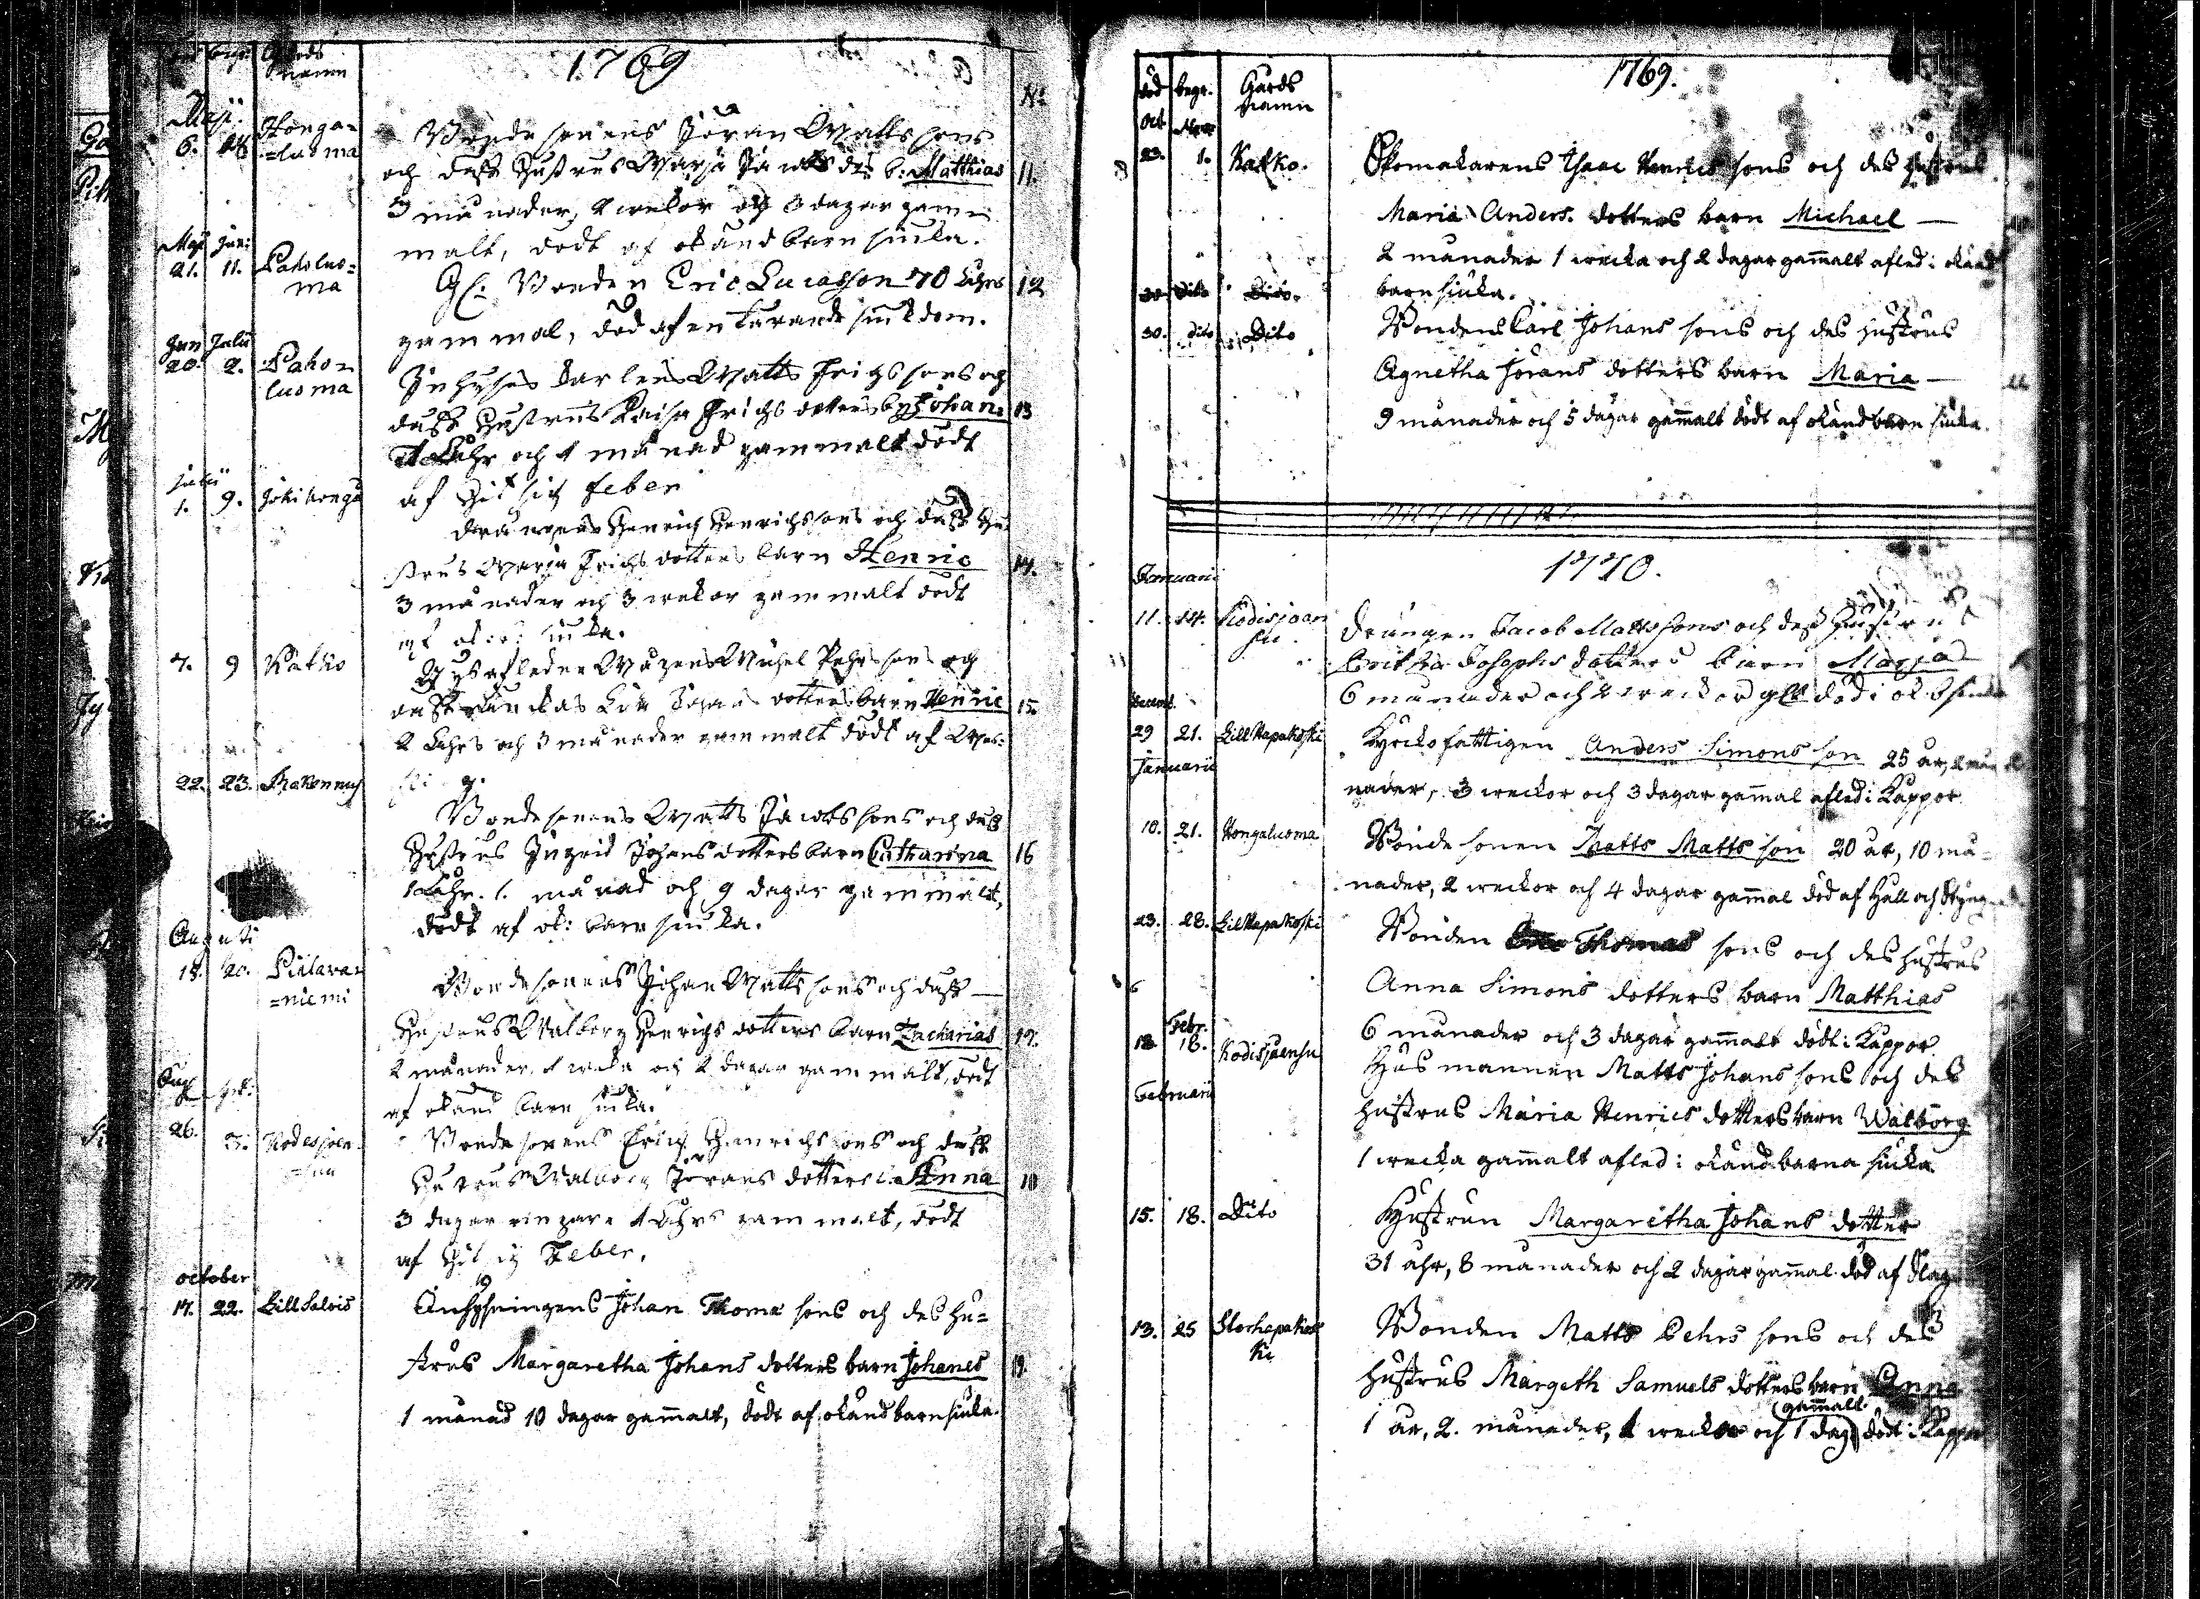 1769
begr. Gårds
namn
No
Maji.
6. Honga=
=luoma
Bonde sonens Jöran Matts sons
och dess Hustrus Marja Jacobs d:s b: Matthias 11.
3 månader, 2 wekor och 3 dagar gam=
malt, dödt af okänd barn siuka.
Maji Juni
21. 11. Paholuo=
ma
Gl: Bonden Eric Lucasson 70 åhrs 12
gammal, död af en tärande siukdom.
Jun Julii
20. 2. Paho=
luoma
Inhyses Karlens Matts Erichs sons och
dess Hustrus Caisa Erichs dotters b: Johan: 13
1 åhr och 1 månad gammalt dödt
af Hitsig feber
Julii
1. 9. Jokihonga
Drängens Henrich Henrichssons och dess Hu=
strus Maria Erichs dotters barn Henric 14.
3 månader och 3 wekor gammalt dödt
af ok: b: siuka.
7. 9 Katko
Michel Pehrs sons och
dotters barn Henric 15.
2 åhrs och 3 månader gammalt dödt af Mas=
22. 23.
Bonde sonens Matts Jacobs sons och dess
Hustrus Ingrid Johans dotters barn Catharina 16
1 åhr. 1. månad och 9 dagar gammalt,
dödt af ok: barn siuka.
Augusti
18. 20. Pällava=
=niemi
Bonde sonens Johan Matts sons och dess
Hustrus Walborg Henrichs dotters barn Zacharias 17.
2 månader, 1 weka och 2 dagar gammalt, dödt
af okänd barn siuka.
Aug
26. 3. Kodesjoen=
=su
Bonde sonens Erich Henrichs sons och dess
Hustrus Walborg Jörans dotters b: Anna 18
3 dagar ringare 1 åhrs gammalt, dödt
af Hitsig Feber.
October
17. 22. Lill Salvis
Inhysningens Johan Thome sons och des hu=
strus Margaretha Johans dotters barn Johanes 19.
1 månad 10 dagar gammalt, dödt af okänd barn siuka.
1769.
död begr. Gårds
namn
Oct
23. 1. Katko.
Skomakarens Isaac Henrics sons och des hustrus
Maria Anders. dotters barn Michael
2 månader 1 wecka och 2 dagar gammalt afled: okänd
barn siuka.
30. dito Dito
Bondens Carl Johans sons och des hustrus
Agnetha Jörans dotters barn Maria
9 månader och 5 dagar gammalt dödt af okänd barn siuka.
1770.
Januarii
11. 14. Kodisjoan
su
Drängen Jacob Matts sons och dess Hustrus
Britha Josephs dotters barn Marja
6 månader och 2 weckor gl: död i ok: b: siuka
Decemb.
29 21. Lill Kapakoski
Kyrcko fattigen Anders Simons son 25 år, 2 må
Januarii
nader, 3 weckor och 3 dagar gammal afled i Kappor
10. 21. Hongaluoma
Bonde sonen Matts Matts son 20 år, 10 må=
nader, 2 weckor och 4 dagar gammal död af Håll och Styng
23. 28. Lill Kapakoski
Bonden Thomas sons och des hustrus
Anna Simons dotters barn Matthias
6 månader och 3 dagar gammalt dödt i Kappor
Febr.
18 18. Kodisjoensu
Husmannen Matts Johans sons och des
Februarii
hustrus Maria Henrics dotters barn Walborg
1 wecka gammalt afled i okänd barna siuka
15. 18. Dito
Hustrun Margaretha Johans dotter
31 åhr, 8 månader och 2 dagar gammal död af Slag
13. 25 Storkapakos
ki
Bonden Matts Pehrs sons och des
hustrus Margeth Samuels dotters barn Anna
gammalt
1 år, 2. månader, 1 wecka och 1 dag dödt i Kappor